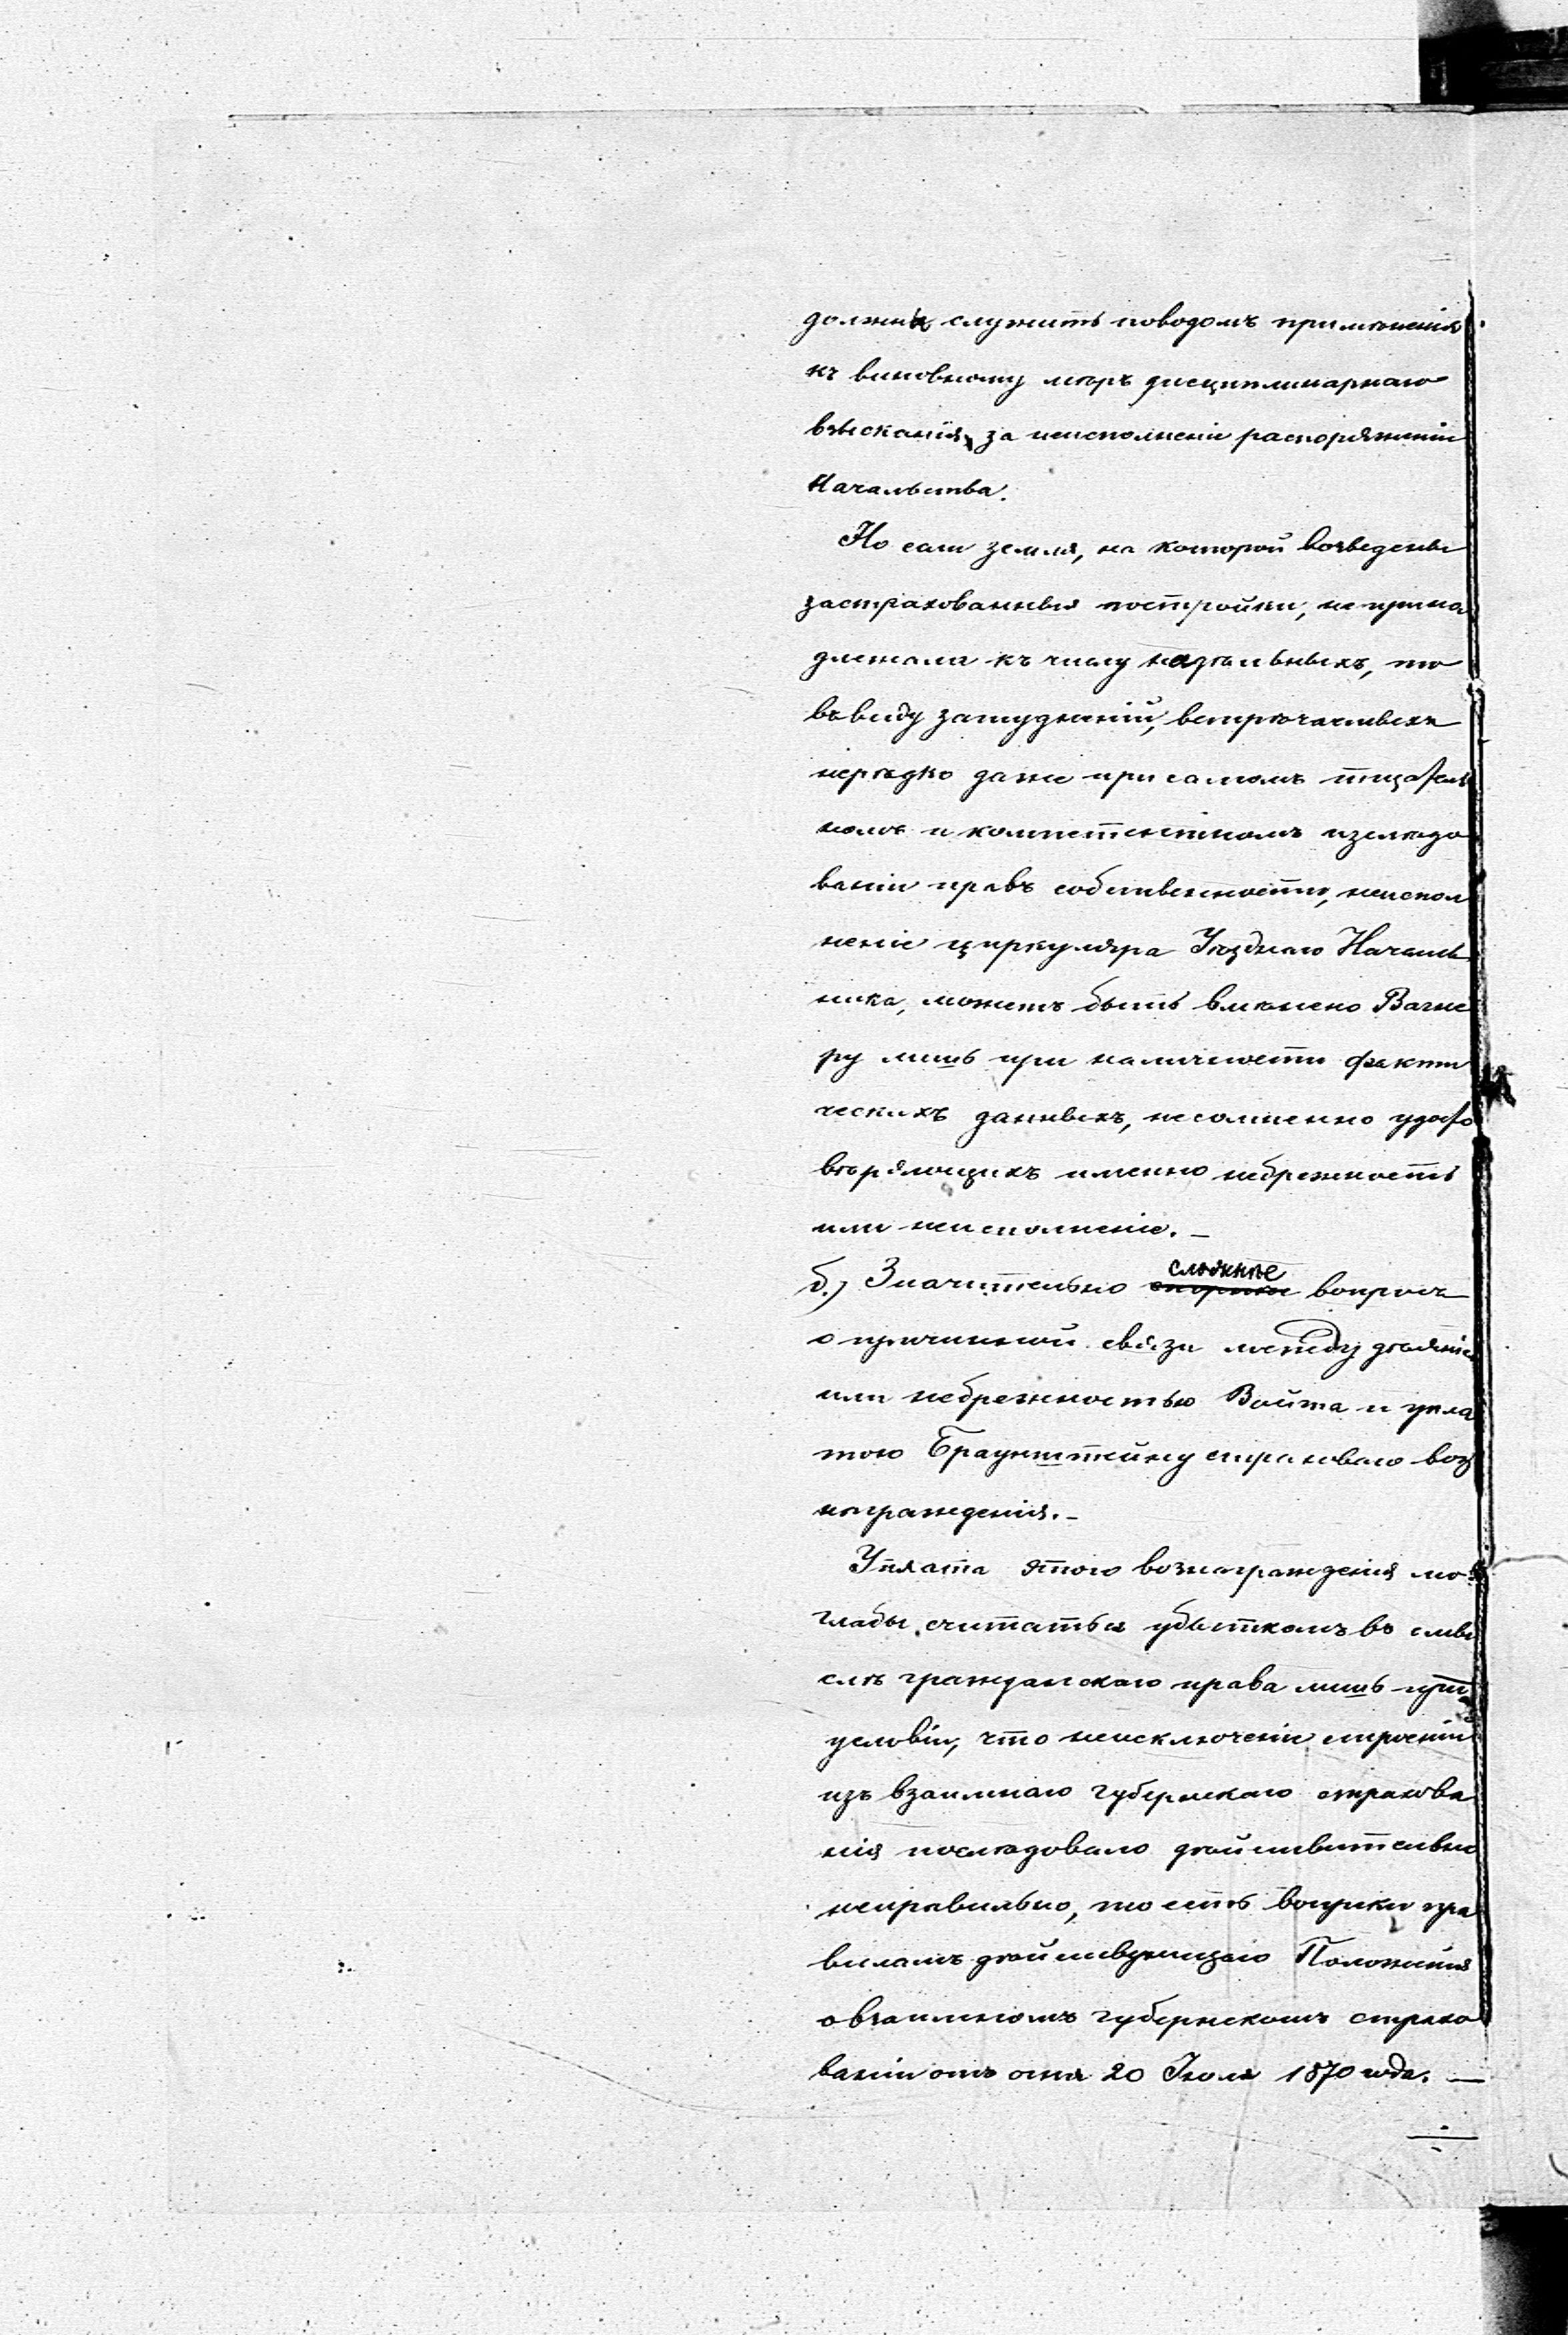 должны служить поводомъ примѣненія
къ виновному мѣръ дисциплинарнаго
взысканія, за неисполненіе распоряженій
Начальства.
Но если земля, на которой возведены
застрахованныя постройки, не прина
длежала къ числу надѣльныхъ, то
въ виду затрудненій, встрѣчаемыхъ
нерѣдко даже при самомъ тщатель
номъ и компетентномъ изслѣдо
ваніи правъ собственности, неиспол
неніе циркуляра Уѣзднаго Началь
ника, можетъ быть вмѣнено Вагне
ру лишь при наличности факти
ческихъ данныхъ, несомненно удосто
вѣряющихъ именно небрежность
или неисполненіе. —
б.) Значительно сложнѣе вопросъ
о причинной связи между дѣяніемъ
или небрежностью Войта и упла
тою Браунштейну страховаго воз
награжденія. —
Уплата этого вознагражденія мо
глабы считаться убыткомъ въ смы
слѣ гражданскаго права лишь при
условіи, что неисключеніе строеній
изъ взаимнаго губернскаго страхова
нія послѣдовало дѣйствительно
неправильно, то есть вопреки пра
виламъ дѣйствующаго Положенія
о взаимномъ губернскомъ страхо
ваніи отъ огня 20 Іюля 1870 года. —